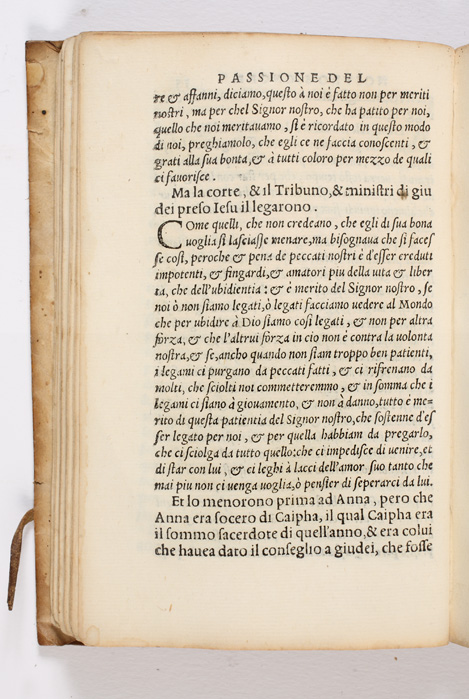 PASSIONE DEL
re & affanni, diciamo, questo à noi è fatto non per meriti
nostri, ma per chel Signor nostro, che ha patito per noi,
quello che noi meritavamo, si è ricordato in questo modo
di noi, preghiamolo, che egli ce ne faccia conoscenti, &
grati alla sua bonta, & à tutti coloro per mezzo de quali
ci favorisce.
Ma la corte, & il Tribuno, & ministri di giu
dei preso Iesu il legarono.
Come quelli, che non credeano, che egli di sua bona
uoglia si lasciasse menare, ma bisognaua che si faces
se così, peroche & pena de peccati nostri è d'esser creduti
impotenti, & fingardi, & amatori piu della uita & liber
ta, che dell'ubidientia: & è merito del Signor nostro, se
noi ò non siamo legati, ò legati facciamo uedere al Mondo
che per ubidire à Dio siamo così legati, & non per altra
forza, & che l'altrui forza in cio non è contra la uolonta
nostra, & se, ancho quando non siam troppo ben patienti,
i legami ci purgano da peccati fatti, & ci rifrenano da
molti, che sciolti noi commetteremmo, & in somma che i
legami ci siano à giouamento, & non à danno, tutto è me-
rito di questa patientia del Signor nostro, che sostenne d'es
ser legato per noi, & per quella habbiam da pregarlo,
che ci sciolga da tutto quello: che ci impedisce di uenire, et
di star con lui, & ci leghi à lacci dell'amor suo tanto che
mai piu non ci uenga uoglia, ò pensier di seperarci da lui.
Et lo menorono prima ad Anna, pero che
Anna era socero di Caipha, il qual Caipha era
il sommo sacerdote di quell'anno, & era colui
che hauea dato il conseglio a giudei, che fosse